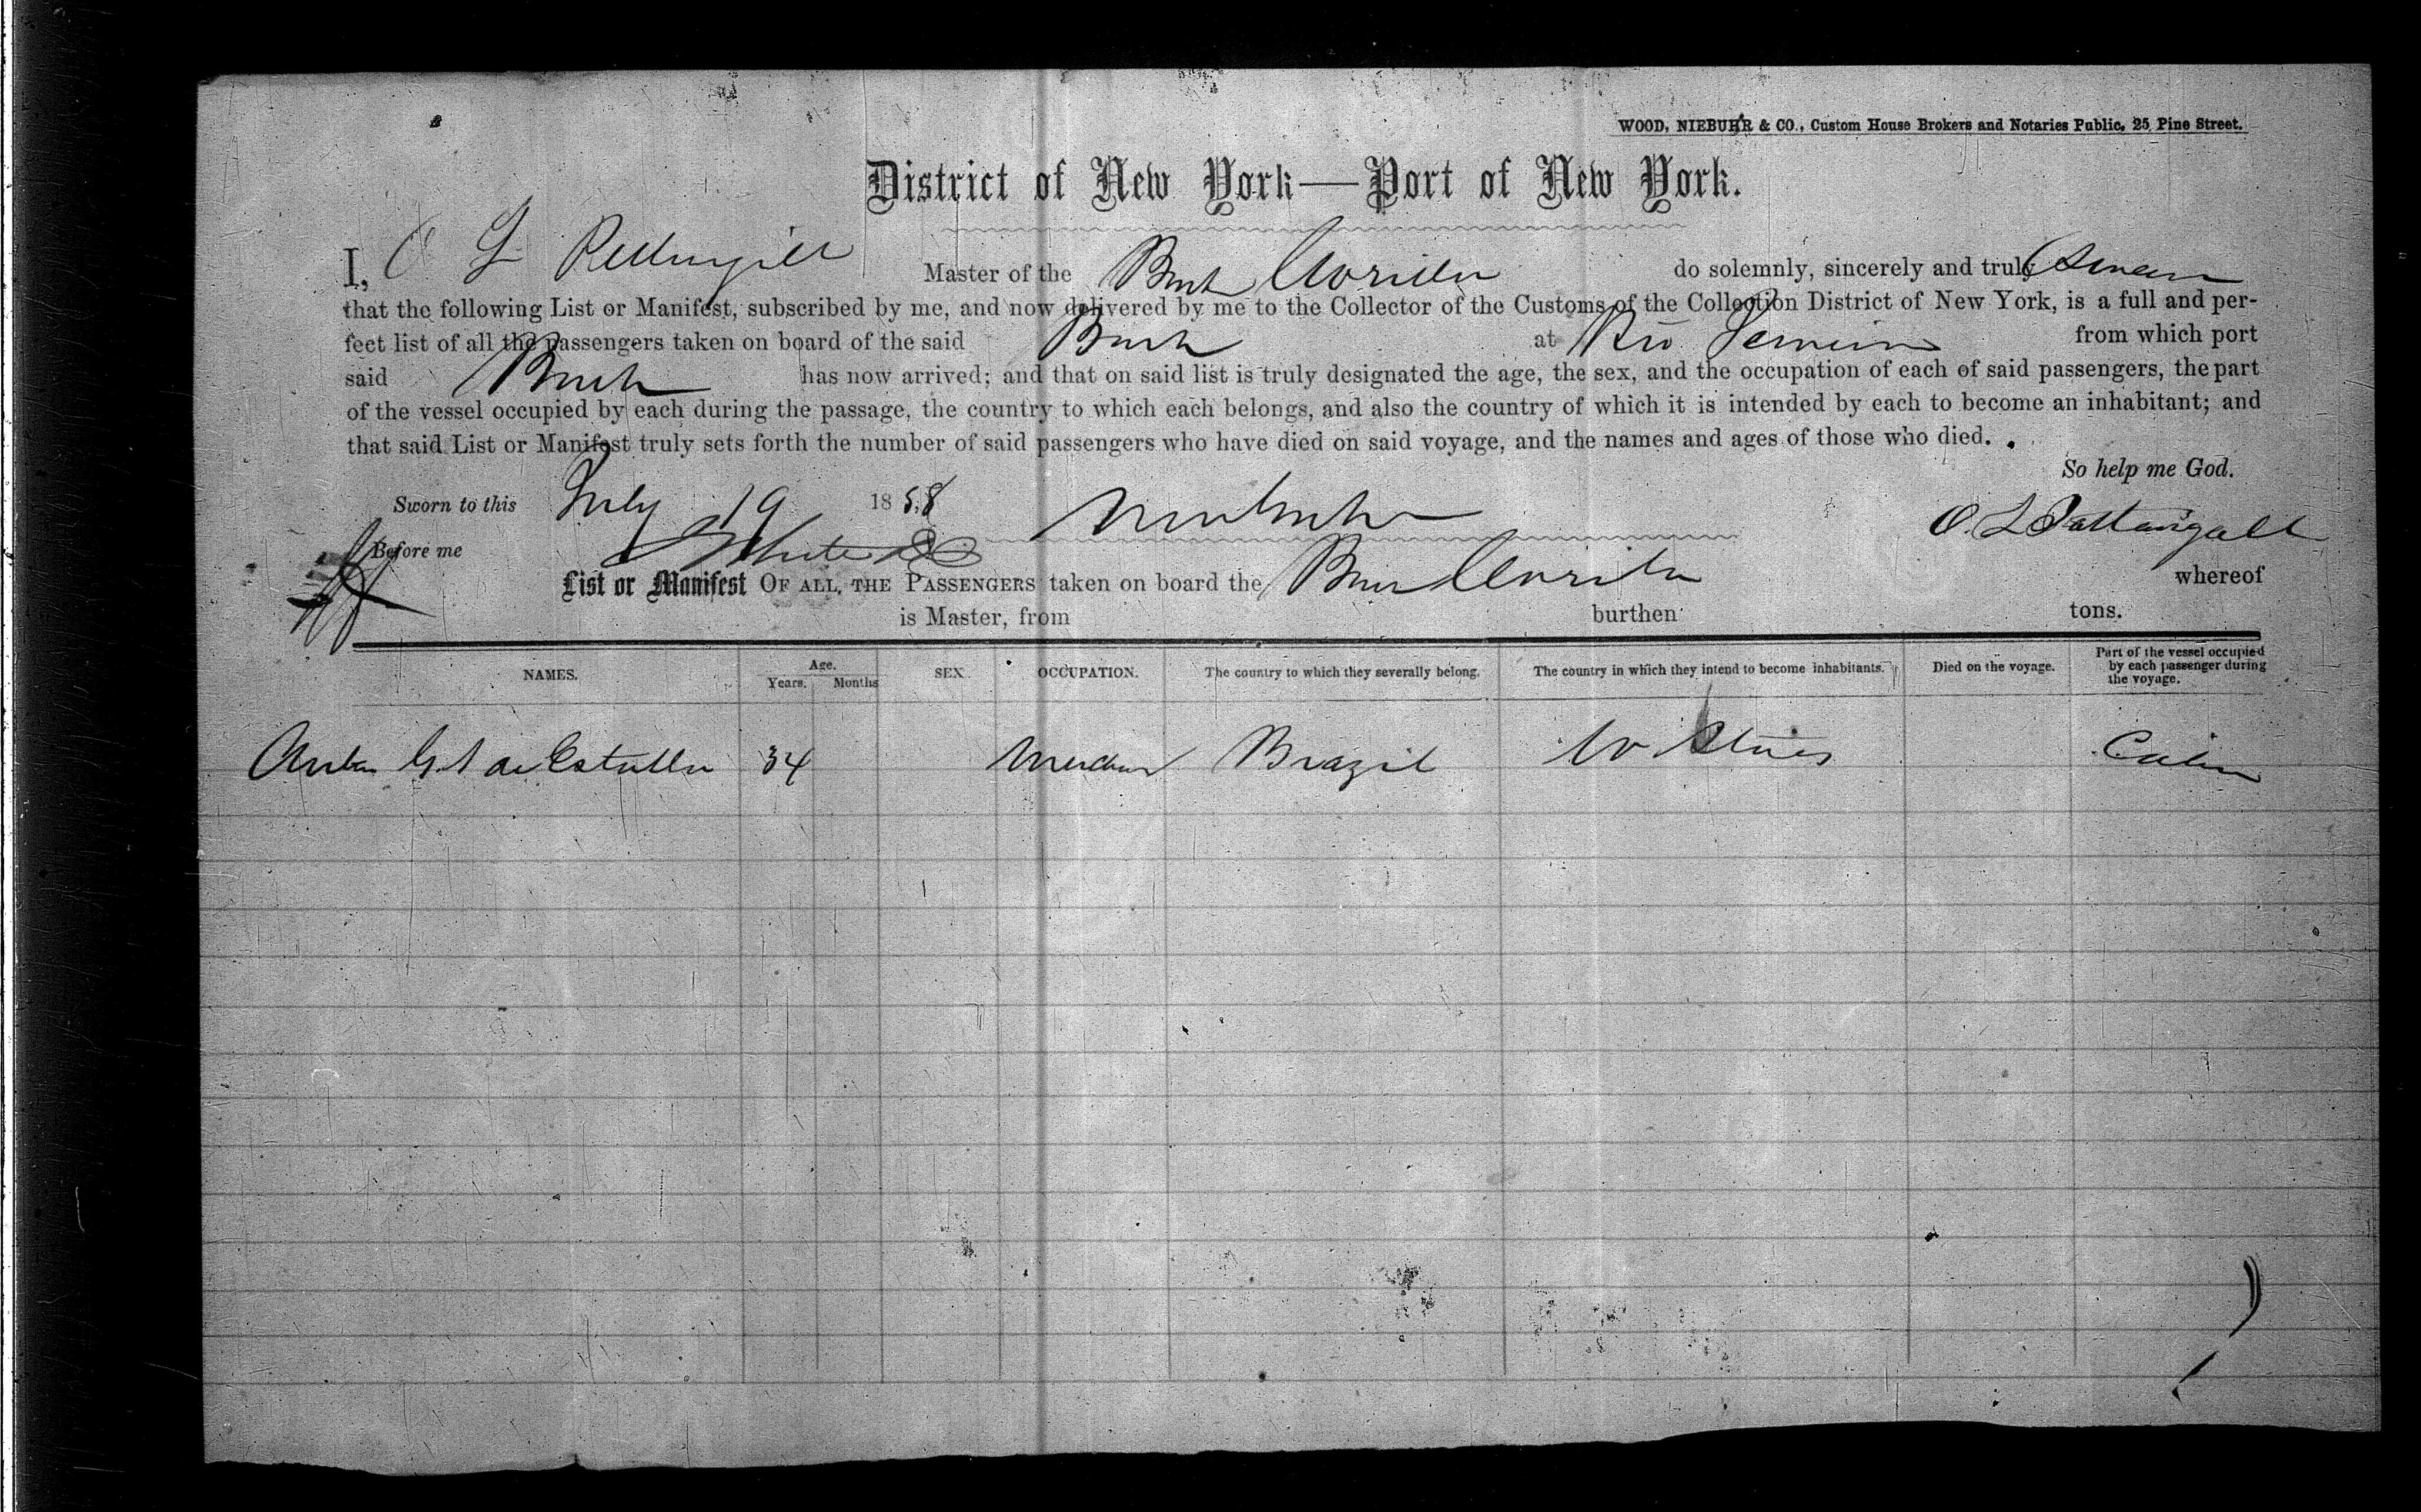 WOOD, NIEBUHR & CO., Custom House Brokers and Notaries Public, 25 Pine Street.
District of New York—Port of New York.
I, O L Master of the Bark do solemnly, sincerely and truly Swear
that the following List or Manifest, subscribed by me, and now delivered by me to the Collector of the Customs of the Collection District of New York, is a full and per-
fect list of all the passengers taken on board of the said Bark at Rio Janeiro from which port
said Bark has now arrived; and that on said list is truly designated the age, the sex, and the occupation of each of said passengers, the part
of the vessel occupied by each during the passage, the country to which each belongs, and also the country of which it is intended by each to become an inhabitant; and
that said List or Manifest truly sets forth the number of said passengers who have died on said voyage, and the names and ages of those who died.
So help me God.
Sworn to this July 19 1858
O. L Pattangall
Before me
List or Manifest OF ALL THE PASSENGERS taken on board the Bark whereof
is Master, from burthen tons.
NAMES. Age. Years. Months SEX OCCUPATION. The country to which they severally belong. The country in which they intend to become inhabitants. Died on the voyage. Part of the vessel occupied by each passenger during the voyage.
34 Brazil States Cabin